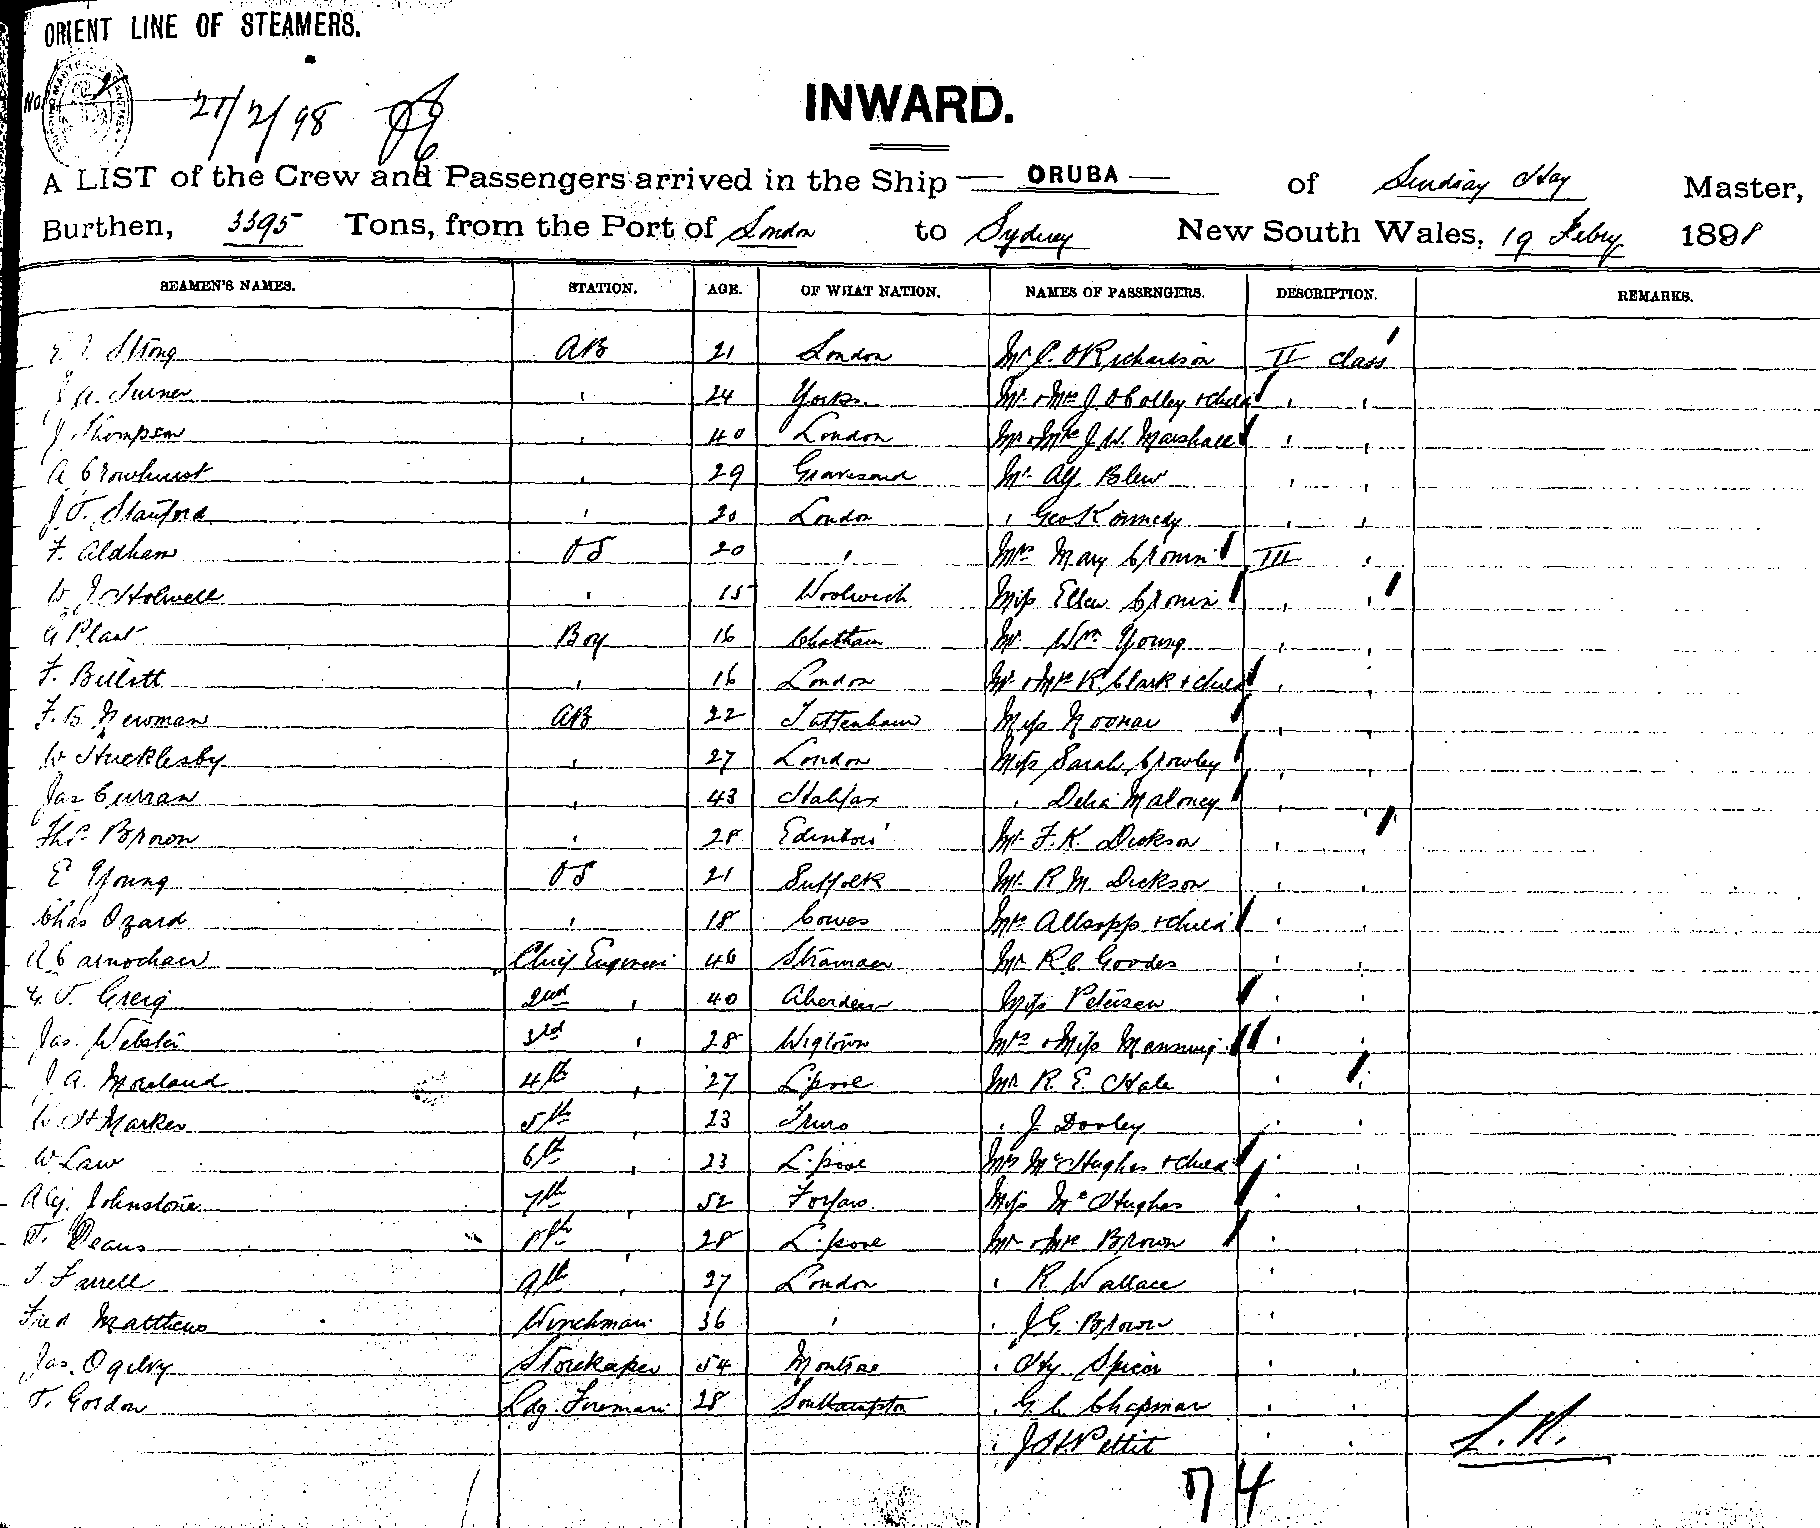 ORIENT LINE OF STEAMERS.
No.
21/2/98
INWARD.
A LIST of the Crew and Passengers arrived in the Ship ORUBA of Lindsay Hay Master,
Burthen, 3395 Tons, from the Port of London to Sydney New South Wales, 19 Febry 1898
SEAMEN'S NAMES. STATION. AGE. OF WHAT NATION. NAMES OF PASSENGERS. DESCRIPTION. REMARKS.
Strong AB 21 London Mr C. O Richardson II class
J A. Turner " 24 Yorks Mr & Mrs J. O Colley & child " "
J Thompson " 40 London Mr & Mrs J. W. Marshall " "
A Crowhurst " 29 Gravesend Mr Alf Blew " "
J. T. Stanford " 20 London " Geo Kennedy " "
F. Aldham OS 20 " Mrs Mary Cronin III "
W J Holwell " 15 Woolwich Miss Ellen Cronin " "
G Plant Boy 16 Chatham Mr Wm Young " "
F. Billett " 16 London Mr & Mrs R Clark & child " "
F. B Newman AB 22 Tottenham Miss Noonan " "
W Hucklesby " 27 London Miss Sarah Crowley " "
Jas Curran " 43 Halifax " Delia Maloney " "
Thos Brown " 28 Edinboro' Mr F. K. Dickson " "
E Young OS 21 Suffolk Mr R M Dickson " "
Chas Ozard " 18 Cowes Mrs Allsopp & child " "
A Carnochan Chief Engineer 46 Stranraer Mr R C Goodes " "
G T. Greig 2nd " 40 Aberdeen Miss Petersen " "
Jas. Webster 3rd " 28 Wigtown Mrs & Miss Manning " "
J A. Morland 4th " 27 L'pool Mr R. E. Hale " "
W H Marker 5th " 23 Truro " J Dooley " "
W Law 6th " 23 L'pool Mrs McHughes & child " "
Alex. Johnstone 7th " 52 Forfar Miss McHughes " "
T. Deans 8th " 28 L'pool Mr & Mrs Brown " "
T Farrell 9th " 27 London " R Wallace " "
Fred Matthews Winchman 36 " " J G. Brown " "
Jas. Ogilvy Storekeeper 54 Montrose " Hy Spicer " "
T. Gordon Ldg. Fireman 28 Southampton " G C Chapman " "
" J H Pettit " "
L. H.
74